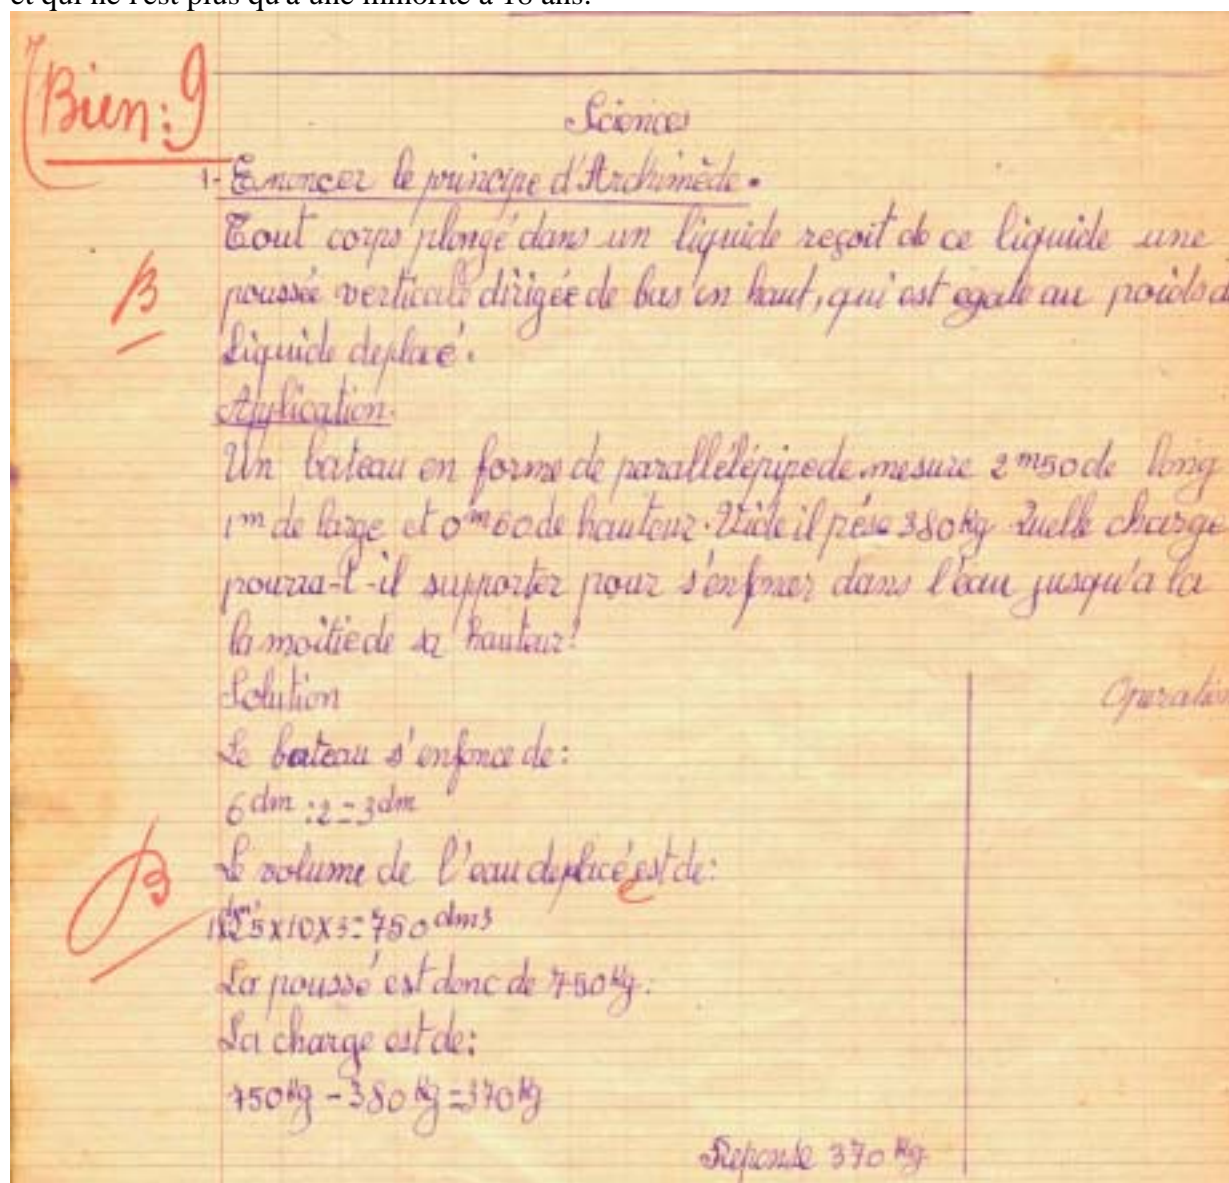 et qui ne l'est plus qu'à une minorité à 18 ans.
Bien: 9
Sciences
1- Enoncer le principe d'Archimède.
Tout corps plongé dans un liquide reçoit de ce liquide une
poussée verticale dirigée de bas en haut, qui est egale au poids d
liquide deplacé.
B
Application.
Un bateau en forme de parallélépipede mesure 2 m50 de long
1m de large et 0m60 de hauteur. Vide il pése 380kg Quelle charge
pourra-t-il supporter pour s'enfoncer dans l'eau jusqu'a la
la moitié de sa hauteur?
Solution
Operation
Le bateau s'enfonce de:
6 dm :2=3dm
Le volume de l'eau deplacée est de:
B
25x10x3=750 dm3
La poussé est donc de 750kg.
La charge est de:
750kg - 380 kg =370kg
Reponse 370 kg